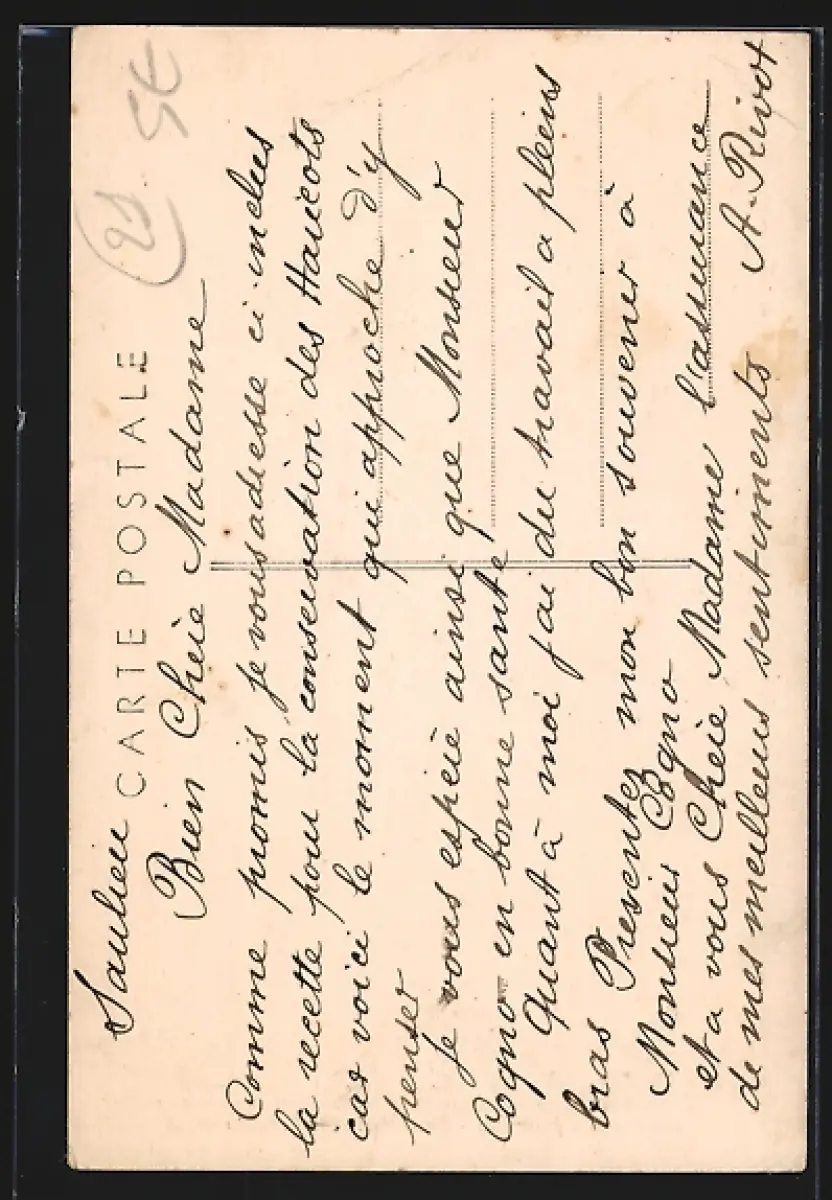 Saulieu
CARTE POSTALE
21
5€
Bien Chère Madame
Comme promis je vous adresse ci-inclus
la recette pour la conservation des Haricots
car voici le moment qui approche d'y
penser
Je vous espère ainsi que Monsieur
Cogno en bonne santé
Quant à moi j'ai du travail a pleins
bras Presentez mon bon souvenir à
Monsieur Cogno
et a vous Chère Madame l'assurance
de mes meilleurs sentiments A. Rivot